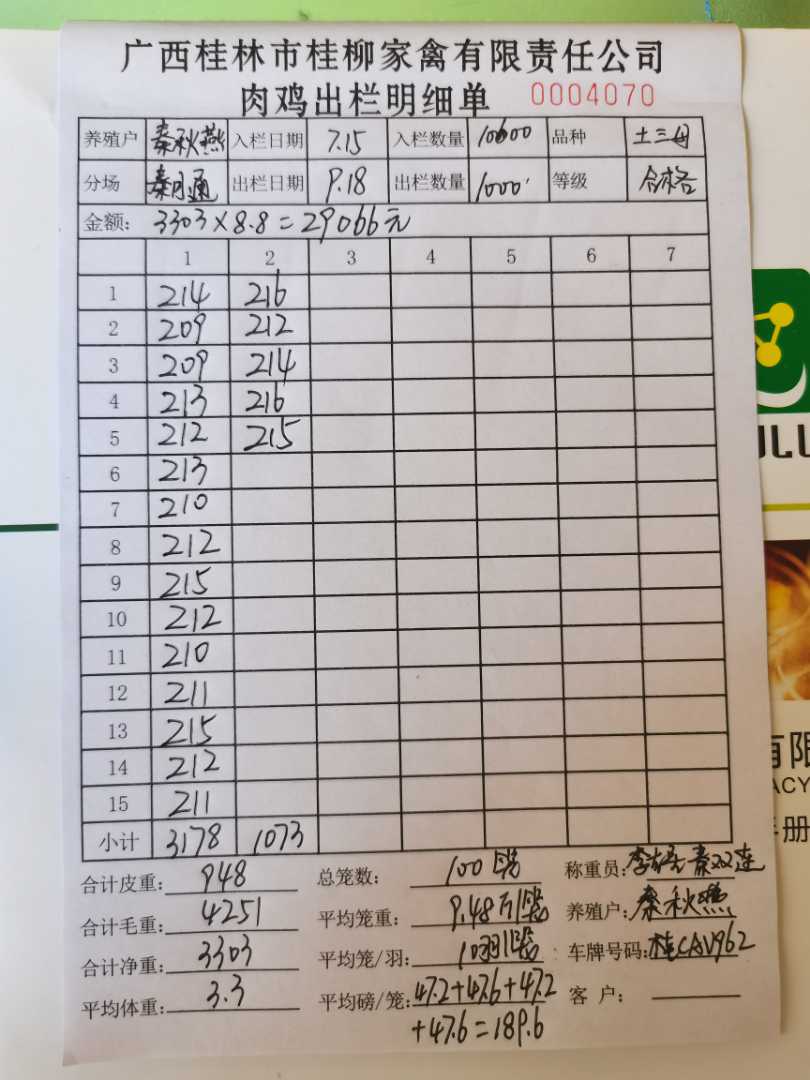 广西桂林市桂柳家禽有限责任公司
肉鸡出栏明细单 0004070
养殖户 秦秋燕 入栏日期 7.15 入栏数量 10600 品种 土三母
分场 出栏日期 9.18 出栏数量 1000 等级 合格
金额: 3303×8.8=29066元
1 2 3 4 5 6 7
1 214 216
2 209 212
3 209 214
4 213 216
5 212 215
6 213
7 210
8 212
9 215
10 212
11 210
12 211
13 215
14 212
15 211
小计 3178 1073
合计皮重: 948 总笼数: 100 称重员: 秦双连
合计毛重: 4251 平均笼重: 9.48 养殖户: 秦秋燕
合计净重: 3303 平均笼/羽: 10羽/笼 车牌号码: 桂CAV962
平均体重: 3.3 平均磅/笼: 47.2+47.6+47.2 客 户:
+47.6=189.6
有限
ACY
手册